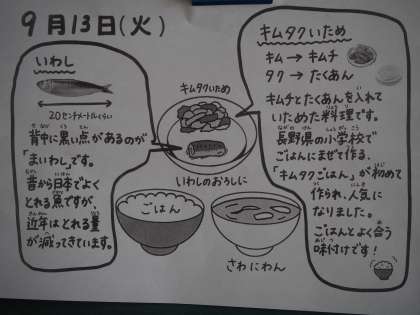 9月13日(火)
いわし
20センチメートルくらい
背中に黒い点があるのが
「まいわし」です。
昔から日本でよく
とれる魚ですが、
近年はとれる量
が減ってきています。
キムタクいため
いわしのおろしに
ごはん
さわにわん
キムタクいため
キム→キムチ
タク→たくあん
キムチとたくあんを入れて
いためた料理です。
長野県の小学校で
ごはんにまぜて作る、
「キムタクごはん」が初めて
作られ、人気に
なりました。
ごはんとよく合う
味付けです!